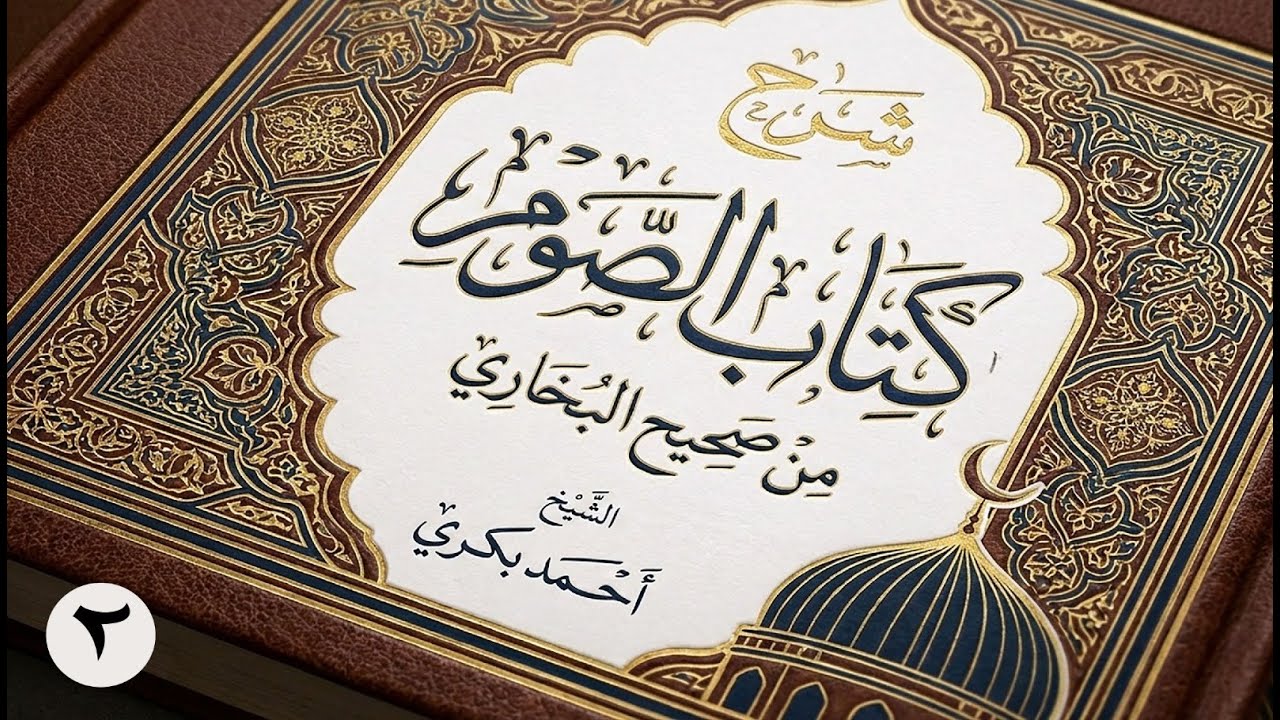 شرح
كِتَاب الصَّوْم
مِنْ صَحِيح البُخَارِي
الشَّيْخ
أَحْمَد بكري
٢